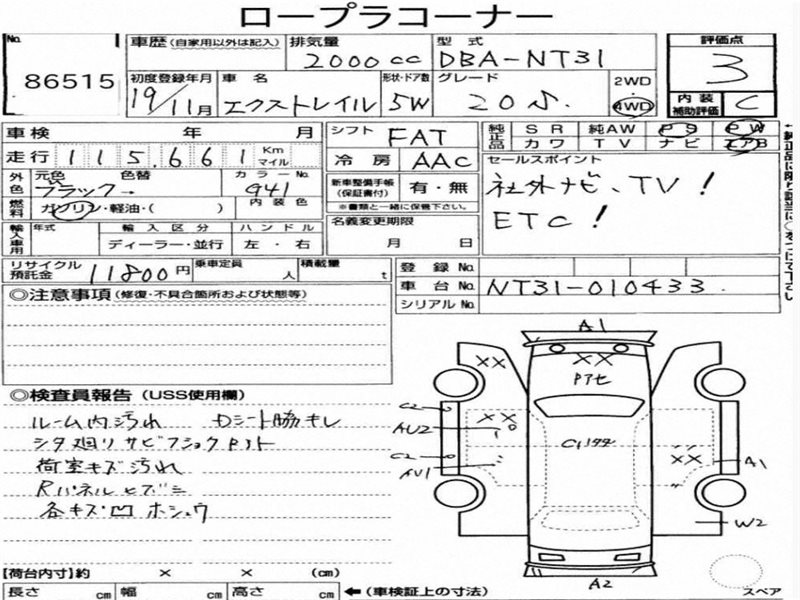 ロープラコーナー
No.
86515
車歴 (自家用以外は記入)
排気量
2000cc
型式
DBA-NT31
評価点
3
初度登録年月
19/11月
車名
エクストレイル
形状・ドア数
5W
グレード
20
2WD
4WD
内装
補助評価
C
車検 年 月
シフト
FAT
純正品
SR 純AW PS PW
カワ TV ナビ エアB
走行
115,661
Km
マイル
冷房
AAC
セールスポイント
社外ナビ、TV!
ETC!
外色
元色
ブラック
色替
カラーNo.
G41
新車整備手帳
(保証書付)
有・無
※書類と一緒に保管下さい。
燃料
ガソリン・軽油・( )
内装色
輸入車用
年式
輸入区分
ディーラー・並行
ハンドル
左・右
名義変更期限
月 日
リサイクル
預託金
11800円
乗車定員
人
積載量
t
登録No.
車台No.
NT31-010433
シリアルNo.
◎注意事項 (修復・不具合箇所および状態等)
◎検査員報告 (USS使用欄)
ルーム内汚れ Dシート脇キレ
シタ廻りサビ
荷室キズ汚れ
Rパネルヒズミ
各キズ凹 ホシュウ
A1
XX
XX
Pアセ
C2
AU2
XX
C2
AU1
XX
A1
W2
A2
スペア
【荷台内寸】約 × × (cm)
長さ cm 幅 cm 高さ cm
←(車検証上の寸法)